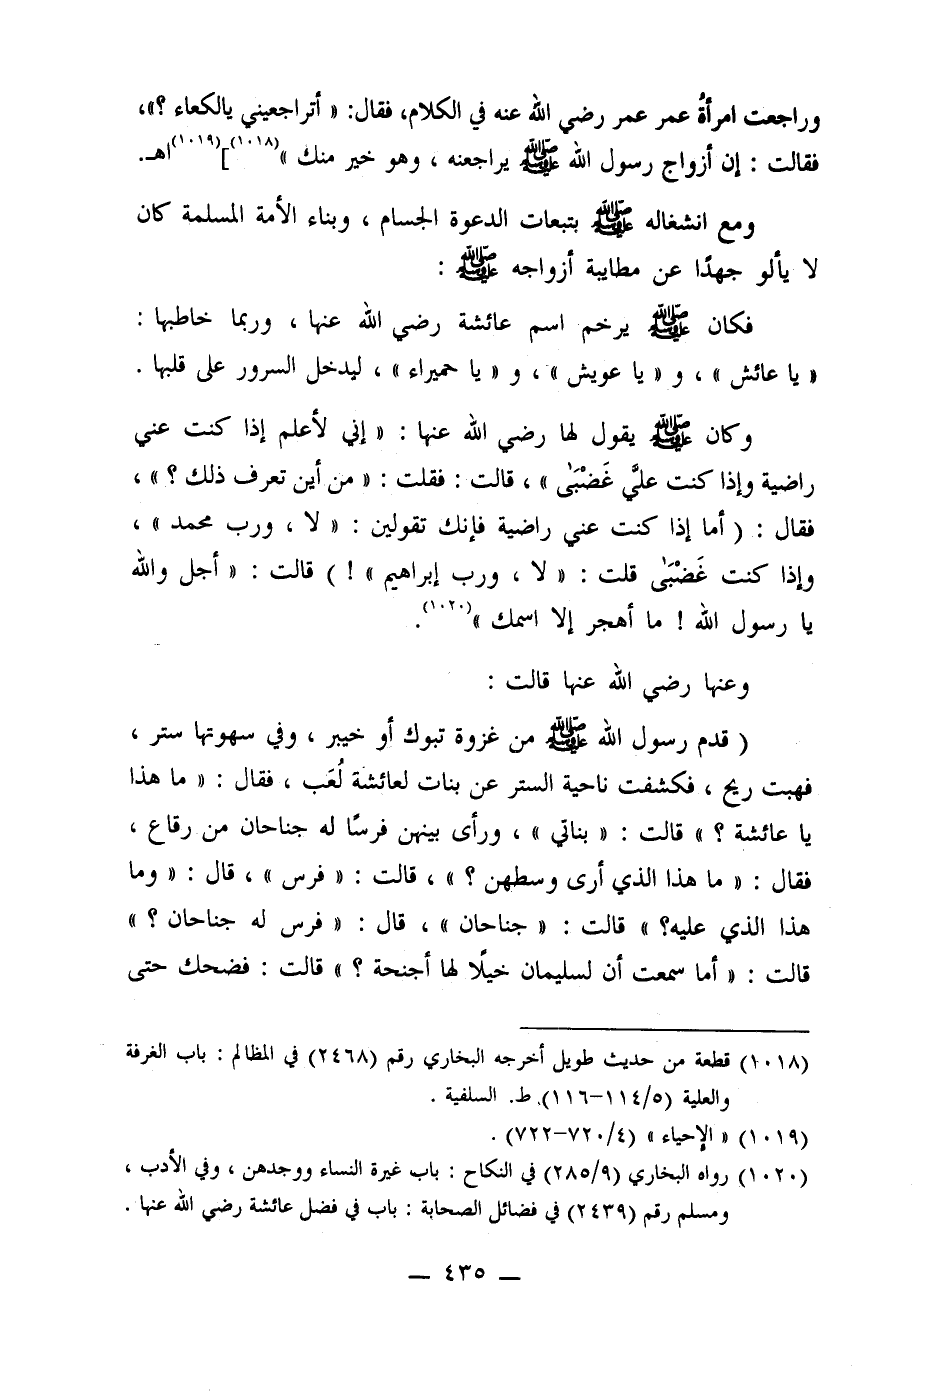 وراجعت امرأةُ عمر عمر رضي الله عنه في الكلام، فقال: « أتراجعيني يالكعاء ؟»،
فقالت : إن أزواج رسول الله ﷺ يراجعنه ، وهو خير منك »(١٠١٨)](١٠١٩)اهـ.
ومع انشغاله ﷺ بتبعات الدعوة الجسام ، وبناء الأمة المسلمة كان
لا يألو جهدًا عن مطايبة أزواجه ﷺ :
فكان ﷺ يرخم اسم عائشة رضي الله عنها ، وربما خاطبها :
« يا عائش » ، و « يا عويش » ، و « يا حميراء » ، ليدخل السرور على قلبها .
وكان ﷺ يقول لها رضي الله عنها : « إني لأعلم إذا كنت عني
راضية وإذا كنت عليَّ غَضْبَىٰ » ، قالت : فقلت : « من أين تعرف ذلك ؟ » ،
فقال : ( أما إذا كنت عني راضية فإنك تقولين : « لا ، ورب محمد » ،
وإذا كنت غَضْبَىٰ قلت : « لا ، ورب إبراهيم » ! ) قالت : « أجل والله
يا رسول الله ! ما أهجر إلا اسمك »(١٠٢٠).
وعنها رضي الله عنها قالت :
( قدم رسول الله ﷺ من غزوة تبوك أو خيبر ، وفي سهوتها ستر ،
فهبت ريح ، فكشفت ناحية الستر عن بنات لعائشة لُعَب ، فقال : « ما هذا
يا عائشة ؟ » قالت : « بناتي » ، ورأى بينهن فرسًا له جناحان من رقاع ،
فقال : « ما هذا الذي أرى وسطهن ؟ » ، قالت : « فرس » ، قال : « وما
هذا الذي عليه؟ » قالت : « جناحان » ، قال : « فرس له جناحان ؟ »
قالت : « أما سمعت أن لسليمان خيلًا لها أجنحة ؟ » قالت : فضحك حتى
(١٠١٨) قطعة من حديث طويل أخرجه البخاري رقم (٢٤٦٨) في المظالم : باب الغرفة
والعلية (١١٤/٥–١١٦). ط. السلفية .
(١٠١٩) « الإحياء » (٧٢٠/٤–٧٢٢) .
(١٠٢٠) رواه البخاري (٢٨٥/٩) في النكاح : باب غيرة النساء ووجدهن ، وفي الأدب ،
ومسلم رقم (٢٤٣٩) في فضائل الصحابة : باب في فضل عائشة رضي الله عنها .
— ٤٣٥ —